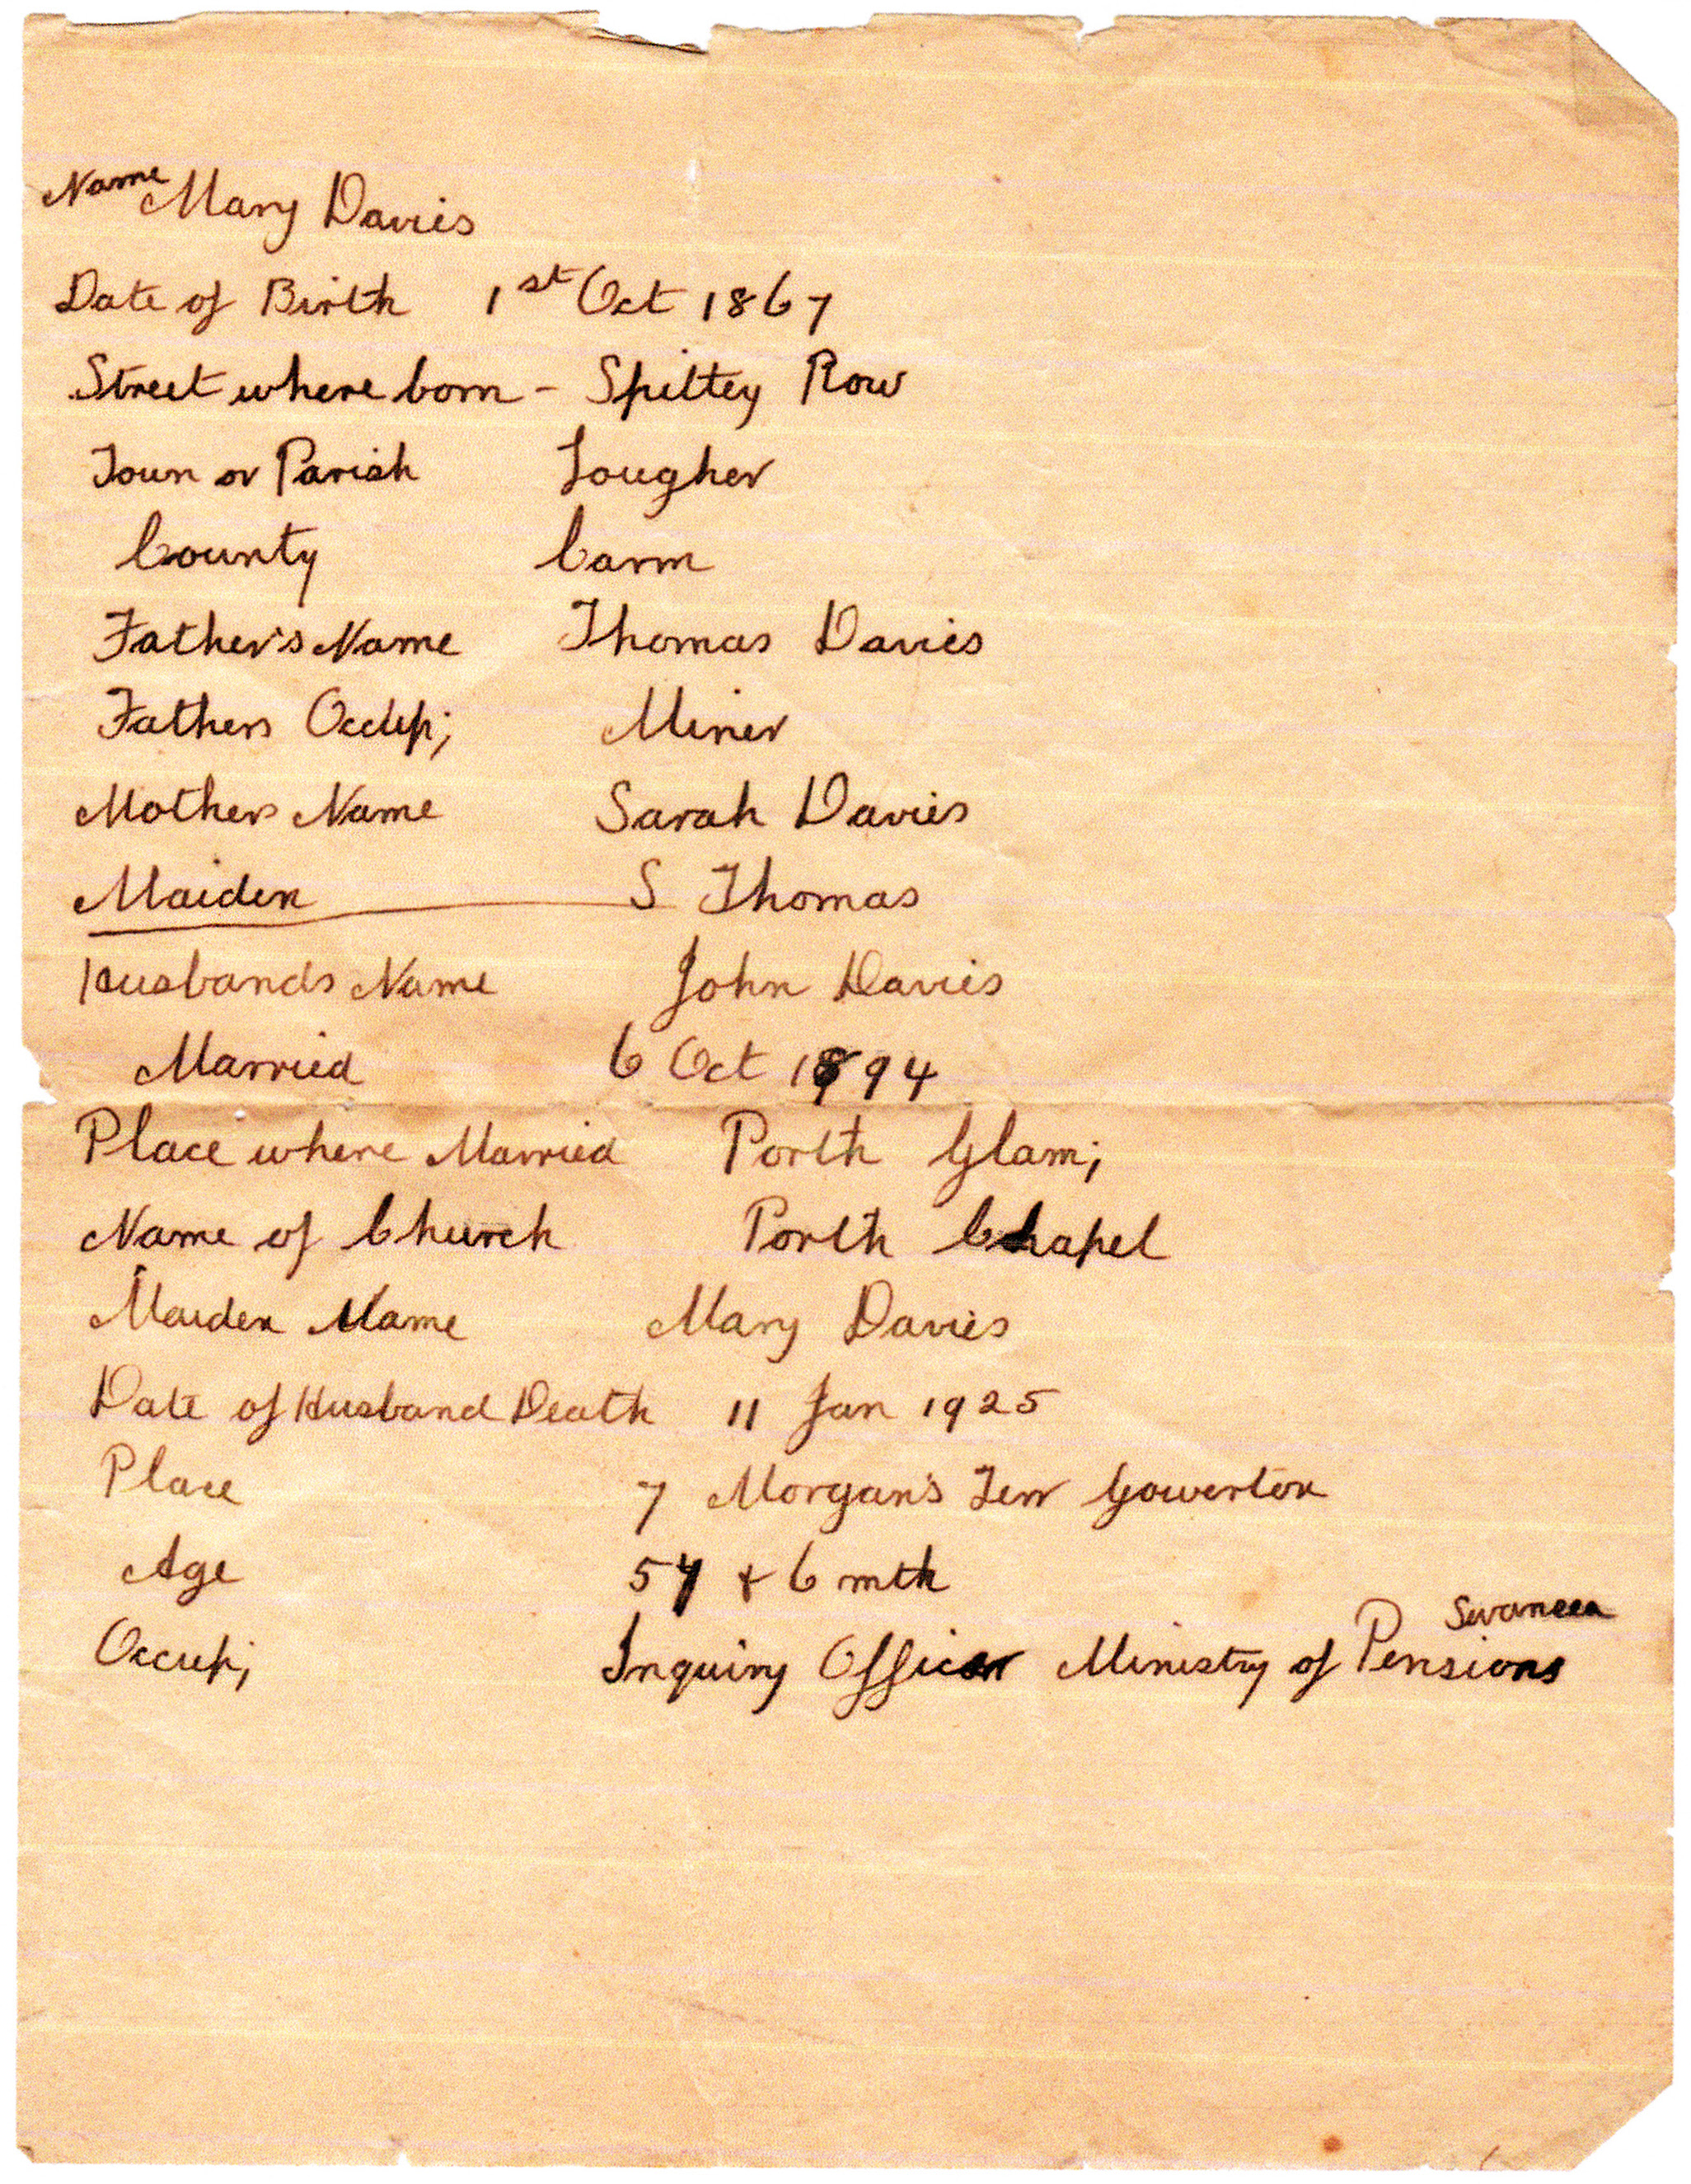 Name Mary Davies
Date of Birth 1st Oct 1867
Street where born - Spittey Row
Town or Parish Lougher
County Carm
Father's Name Thomas Davies
Fathers Occup;
Miner
Mothers Name Sarah Davies
Maiden S Thomas
Husbands Name John Davies
Married 6 Oct 1894
Place where Married Porth Glam;
Name of Church Porth Chapel
Maiden Name Mary Davies
Date of Husband Death 11 Jan 1925
Place 7 Morgan's Terr Gowerton
Age & 6 mth
Swansea
Occup; Inquiry Officer Ministry of Pensions